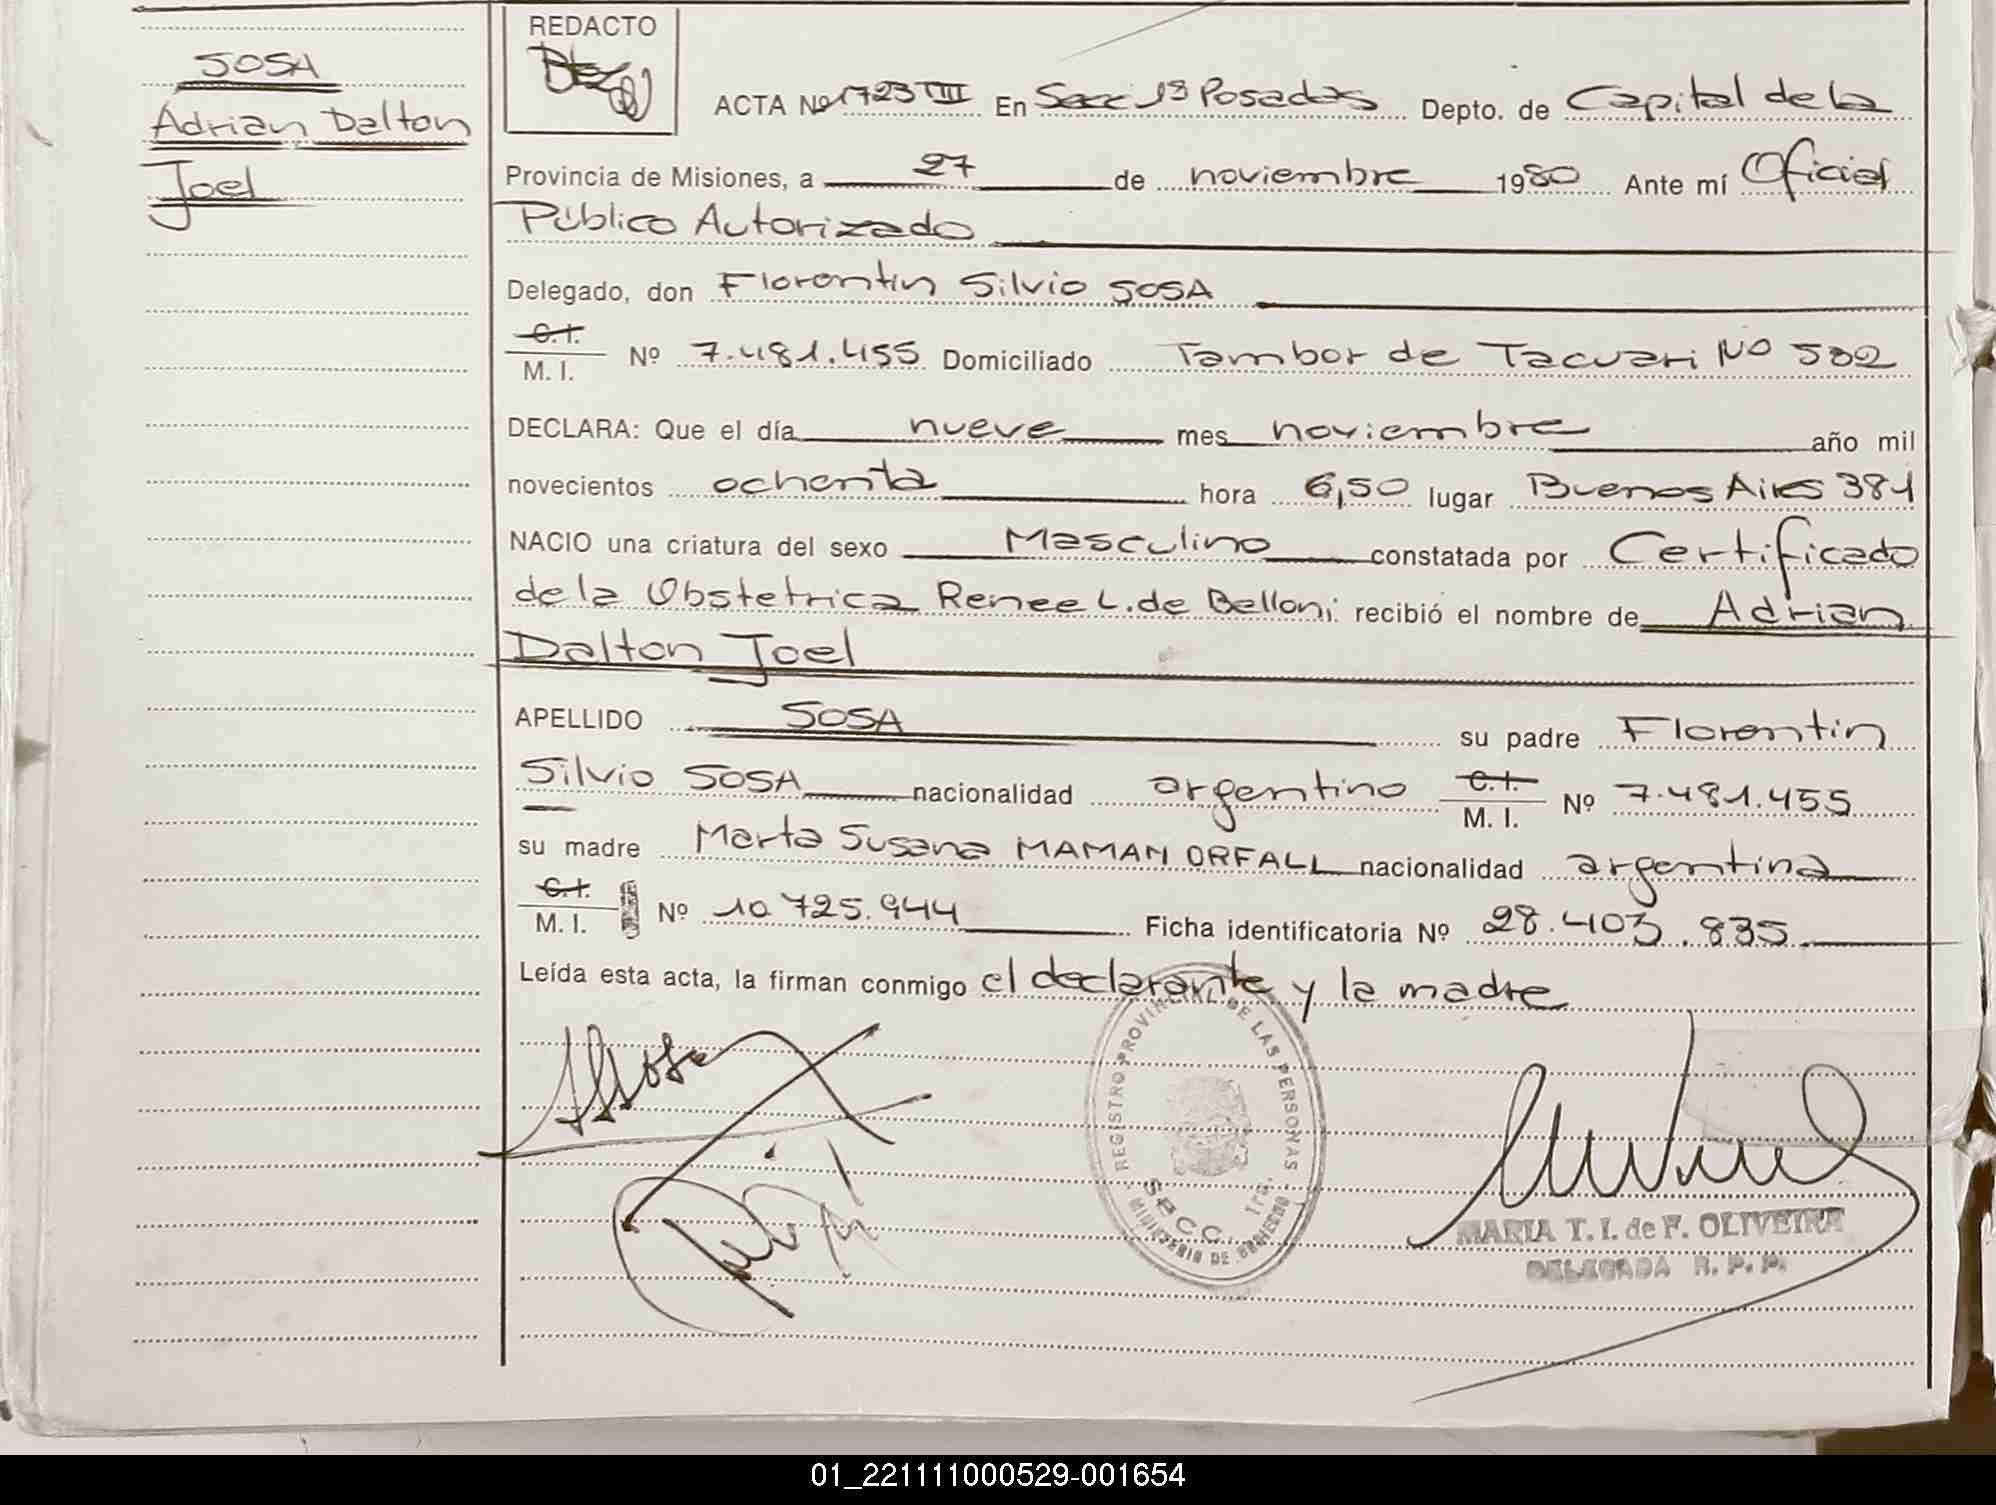 SOSA
Adrian Dalton
Joel
REDACTO
ACTA Nº 1723 TIII En Secc 1ª Posadas Depto. de Capital de la
Provincia de Misiones, a 27 de noviembre 1980 Ante mí Oficial
Público Autorizado
Delegado, don Florentin Silvio SOSA
C.I.
M. I. Nº 7.481.455 Domiciliado Tambor de Tacuari Nº 502
DECLARA: Que el día nueve mes noviembre año mil
novecientos ochenta hora 6,50 lugar Buenos Aires 381
NACIO una criatura del sexo Masculino constatada por Certificado
de la Obstetrica Renee L. de Belloni recibió el nombre de Adrian
Dalton Joel
APELLIDO SOSA su padre Florentin
Silvio SOSA nacionalidad argentino C.I. M. I. Nº 7.481.455
su madre Marta Susana MAMAN ORFALI nacionalidad argentina
C.I.
M. I. Nº 10.725.944 Ficha identificatoria Nº 28.403.835
Leída esta acta, la firman conmigo el declarante y la madre
REGISTRO PROVINCIAL DE LAS PERSONAS
Secc. 1ra.
MINISTERIO DE GOBIERNO
MARIA T. I. de F. OLIVEIRA
DELEGADA R. P. P.
01_221111000529-001654